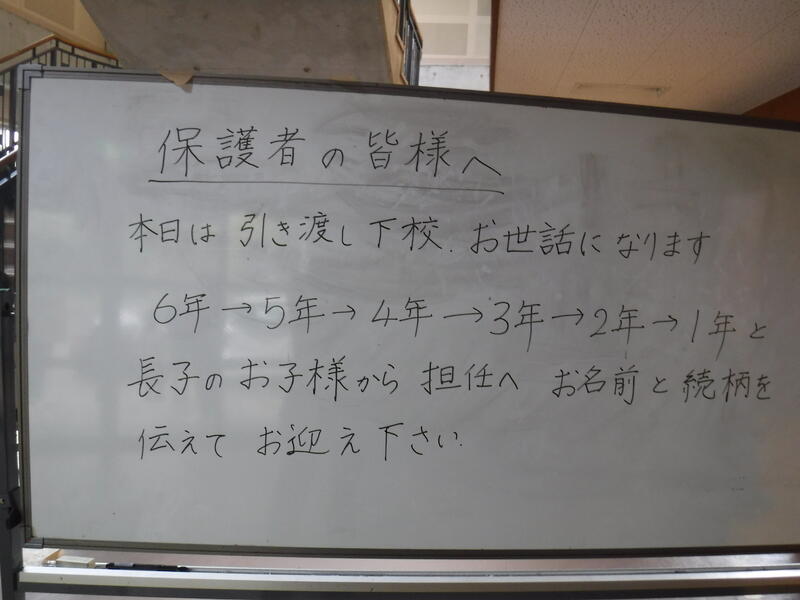 保護者の皆様へ
本日は引き渡し下校.お世話になります
6年→5年→4年→3年→2年→1年と
長子のお子様から担任へ お名前と続柄を
伝えて お迎え下さい.